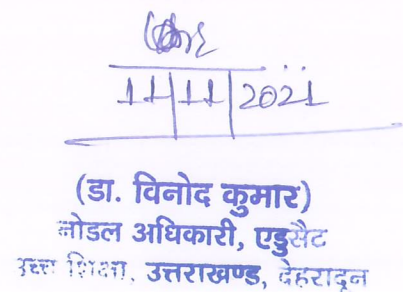 11|11|2021
(डा. विनोद कुमार)
नोडल अधिकारी, एडुसैट
उच्च शिक्षा, उत्तराखण्ड, देहरादून